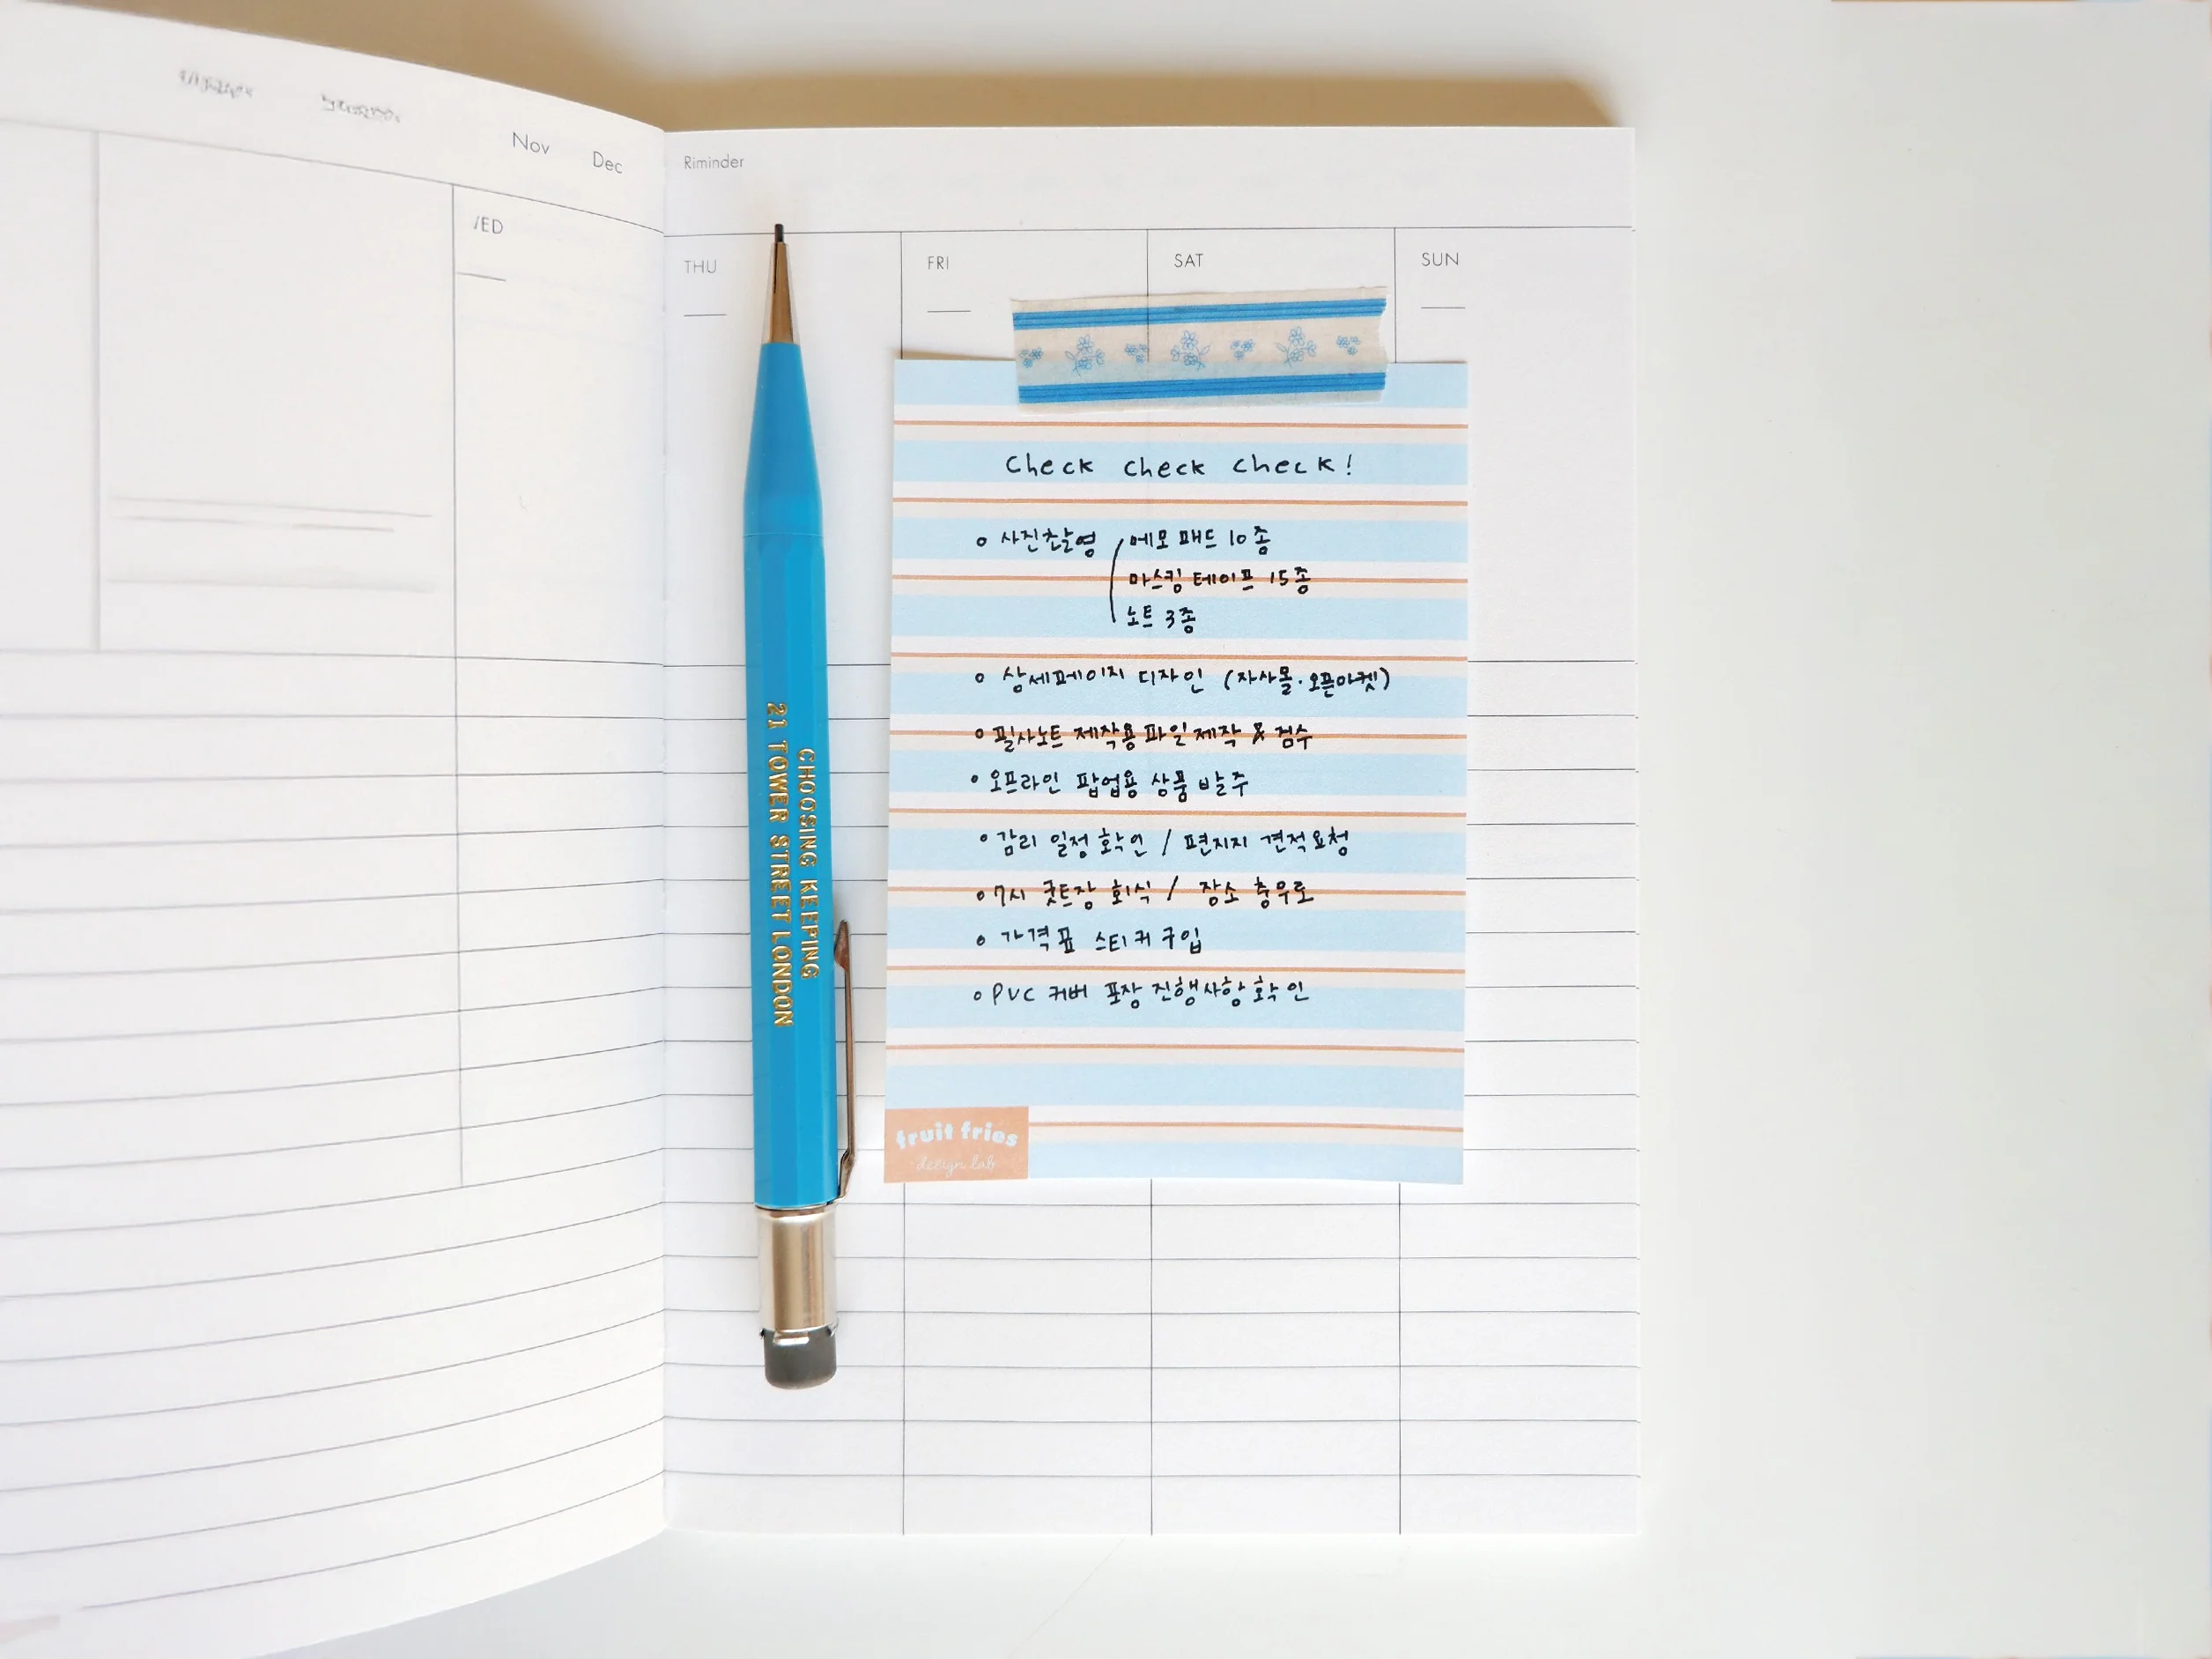 Nov Dec
/ED
Riminder
THU FRI SAT SUN
check check check!
사진촬영 메모패드 10종
마스킹 테이프 15종
노트 3종
상세페이지 디자인 (자사몰·오픈마켓)
필사노트 제작용 파일제작 & 검수
오프라인 팝업용 상품 발주
감리 일정 확인 / 편지지 견적요청
7시 굿트장 회식 / 장소 충무로
가격표 스티커 구입
PVC 커버 포장 진행사항 확인
fruit fries
design lab
CHOOSING KEEPING
21 TOWER STREET LONDON